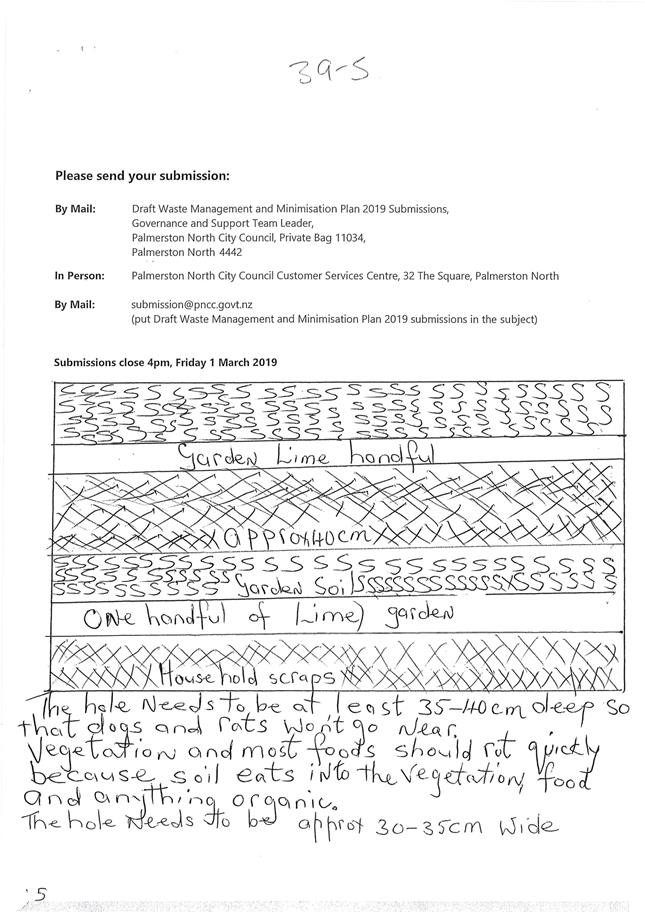 39-5
Please send your submission:
By Mail: Draft Waste Management and Minimisation Plan 2019 Submissions,
Governance and Support Team Leader,
Palmerston North City Council, Private Bag 11034,
Palmerston North 4442
In Person: Palmerston North City Council Customer Services Centre, 32 The Square, Palmerston North
By Mail: submission@pncc.govt.nz
(put Draft Waste Management and Minimisation Plan 2019 submissions in the subject)
Submissions close 4pm, Friday 1 March 2019
Garden Lime handful
approx 40cm
Garden Soil
One handful of Lime) garden
Household scraps
The hole Needs to be at least 35-40cm deep so
that dogs and rats won't go Near.
Vegetation and most foods should rot quickly
because soil eats into the vegetation, food
and anything organic.
The hole Needs to be approx 30-35cm wide
5